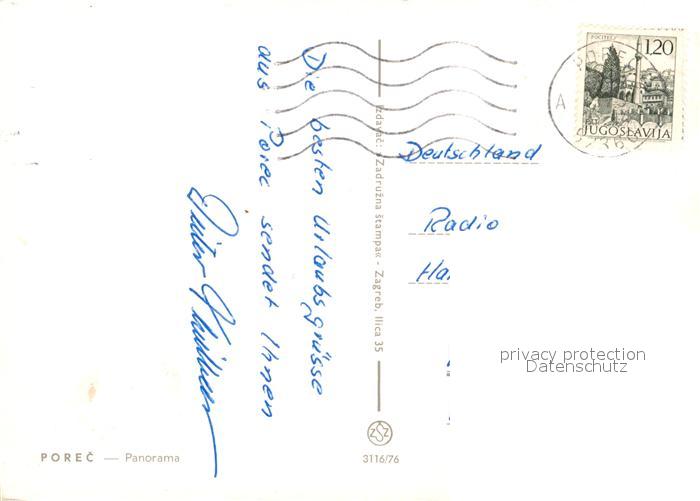 Die besten Urlaubsgrüsse
aus Poreč sendet Ihnen
Dieter
Izdavač: »Zadružna štampa« - Zagreb, Ilica 35
POČITELJ
1,20
JUGOSLAVIJA
A
Deutschland
Radio
Ha
privacy protection
Datenschutz
ZSZ
3116/76
POREČ — Panorama